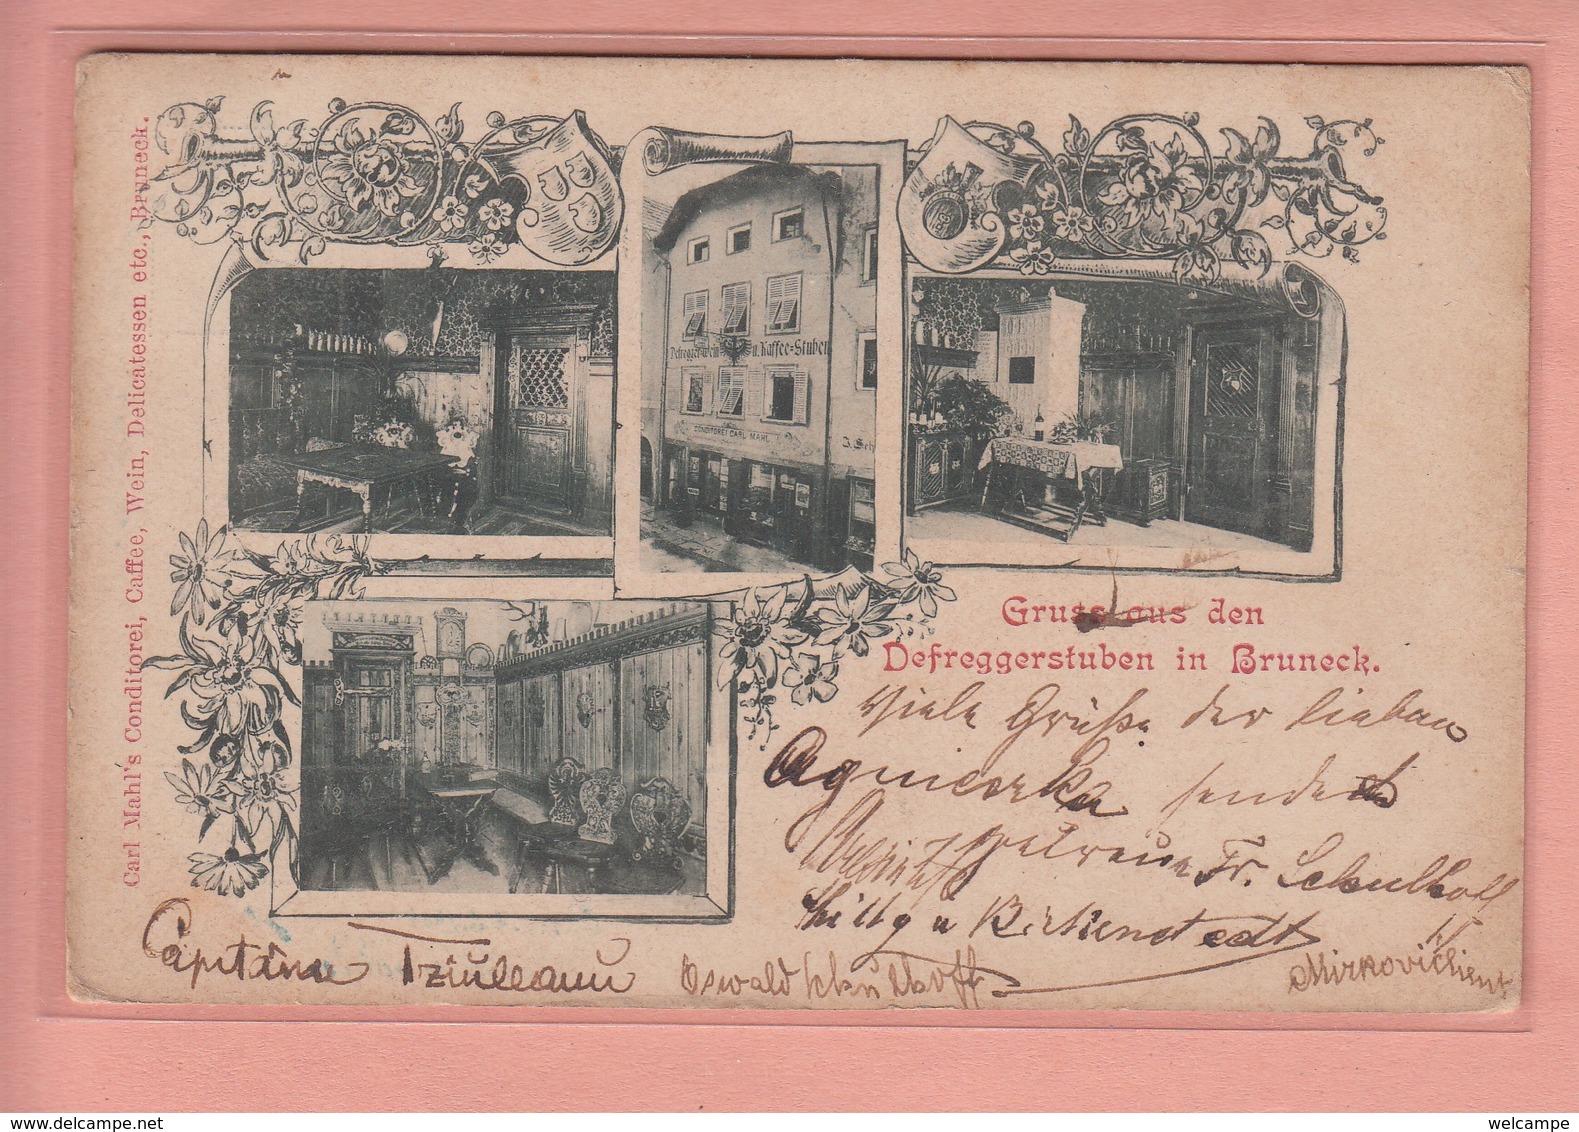 Carl Mahl's Conditorei, Caffee, Wein, Delicatessen etc., Bruneck.
Defregger-Wein u. Kaffee-Stuben
CONDITOREI CARL MAHL
Gruss aus den
Defreggerstuben in Bruneck.
Viele Grüße der lieben
Agnieszka sendet
getreue Fr. Schulhoff
u Birkenstedt
Oswald Schulhoff
Mirkovich
www.delcampe.net
welcampe